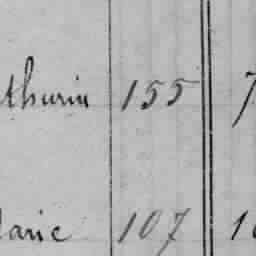 thurin 155 7
arie 107 1